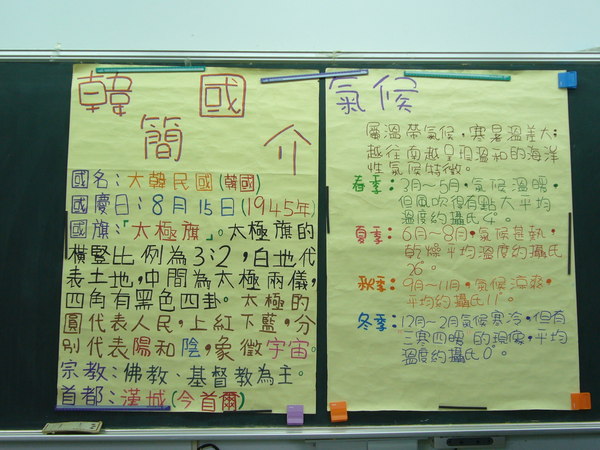 韓國
簡介
國名：大韓民國(韓國)
國慶日：8月15日(1945年)
國旗：「太極旗」。太極旗的
橫豎比例為3:2，白地代
表土地，中間為太極兩儀，
四角有黑色四卦。太極的
圓代表人民，上紅下藍，分
別代表陽和陰，象徵宇宙。
宗教：佛教、基督教為主。
首都：漢城(今首爾)
氣候
屬溫帶氣候，寒暑溫差大；
越往南越呈現溫和的海洋
性氣候特徵。
春季：3月～5月，氣候溫暖，
但風吹很有點大平均
溫度約攝氏4°。
夏季：6月～8月，氣候甚熱，
乾燥平均溫度約攝氏
26°。
秋季：9月～11月，氣候涼爽，
平均約攝氏11°。
冬季：12月～2月氣候寒冷，但有
三寒四暖的現像，平均
溫度約攝氏0°。